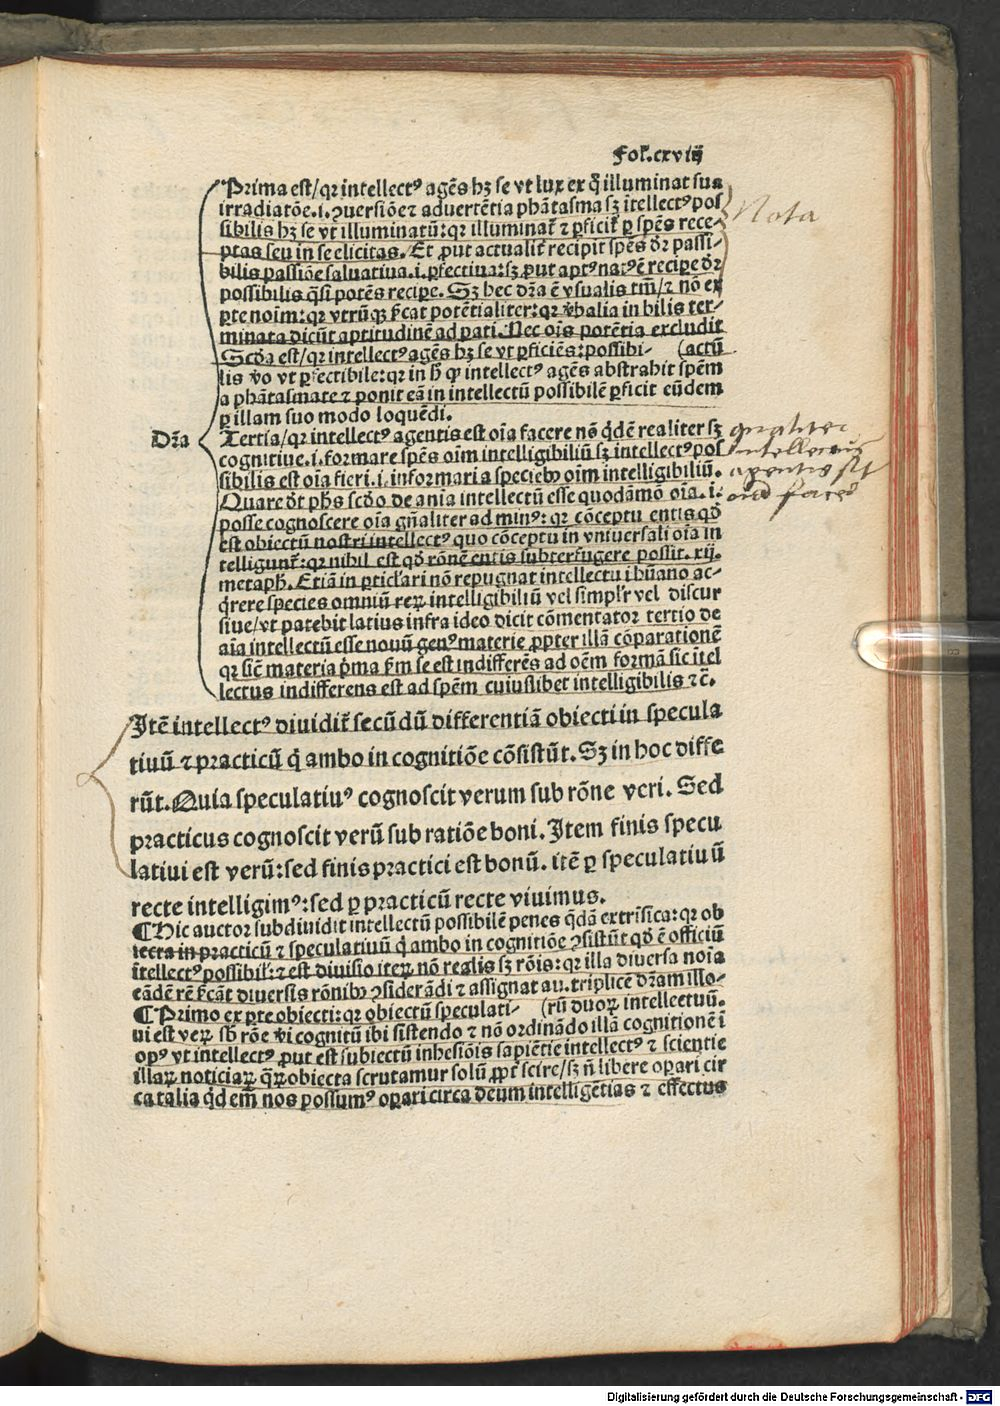 Fol̃.cxviij
Prima est/qꝛ intellectꝰ agẽs hꝫ se vt lux ex q̃ illuminat sua
irradiatõe.i.ꝯuersiõe ⁊ aduertẽtia phãtasma sꝫ ĩtellectꝰ pos
sibilis hꝫ se vt illuminatũ: qꝛ illuminat̃ ⁊ ꝑficit̃ ꝑ spẽs rece-
ptas seu in se elicitas. Et ꝓut actualit̃ recipit spẽs dr̃ passi-
bilis passiõe saluatiua.i.ꝑfectiua: sꝫ ꝓut aptꝰ natꝰ ẽ recipe dr̃
possibilis q̃si potẽs recipe. Sꝫ hec dr̃a ẽ vsualis tm̃/⁊ nõ ex
ꝑte noim: qꝛ vtrũqꝫ sig̃cat potẽtialiter: qꝛ v̾balia in bilis ter-
minata dicũt aptitudinẽ ad pati. Nec oĩs potẽtia excludit
Scd̃a est/qꝛ intellectꝰ agẽs hꝫ se vt ꝑficiẽs: possibi- (actũ
lis v̾o vt ꝑfectibile: qꝛ in h̃ ꝙ intellectꝰ agẽs abstrahit spẽm
a phãtasmate ⁊ ponit eã in intellectũ possibilẽ ꝑficit eũdem
ꝑ illam suo modo loquẽdi.
Nota
Dr̃a
Tertia/qꝛ intellectꝰ agentis est oĩa facere nõ q̃dẽ realiter sꝫ
cognitiue.i.formare spẽs oĩm intelligibiliũ sꝫ intellectꝰ pos
sibilis est oĩa fieri.i.informari a speciebꝰ oĩm intelligibiliũ.
Quare dr̃t ph̃s scd̃o de aĩa intellectũ esse quodãmõ oĩa.i.
posse cognoscere oĩa gñaliter ad minꝰ: qꝛ cõceptu entis qd̃
est obiectũ nostri intellectꝰ quo cõceptu in vniuersali oĩa in
telligunt̃: qꝛ nihil est qd̃ rõnẽ entis subterfugere possit.xij.
metaph̃. Etiã in ꝑticl̃ari nõ repugnat intellectui hũano ac-
q̃rere species omniũ reꝝ intelligibiliũ vel simpl̃r vel discur
siue/vt patebit latius infra ideo dicit cõmentator tertio de
aĩa intellectũ esse nouũ genꝰ materie ꝓpter illã cõparationẽ
qꝛ sic̃ materia p̃ma s̃m se est indifferẽs ad oẽm formã sic ĩtel
lectus indifferens est ad spẽm cuiuslibet intelligibilis ⁊c̃.
qualiter
intellectus
agentis sit
oĩa facere
Itẽ intellectꝰ diuidit̃ secũdũ differentiã obiecti in specula
tiuũ ⁊ practicũ q̃ ambo in cognitiõe cõsistũt. Sꝫ in hoc diffe
rũt. Quia speculatiuꝰ cognoscit verum sub rõne veri. Sed
practicus cognoscit verũ sub ratiõe boni. Item finis specu
latiui est verũ: sed finis practici est bonũ. itẽ ꝑ speculatiuũ
recte intelligimꝰ: sed ꝑ practicũ recte viuimus.
¶Hic auctor subdiuidit intellectũ possibilẽ penes q̃dã extrĩsica: qꝛ ob
iecta in practicũ ⁊ speculatiuũ q̃ ambo in cognitiõe ꝯsistũt qd̃ ẽ officiũ
ĩtellectꝰ possibil̃: ⁊ est diuisio iteꝝ nõ realis sꝫ rõis: qꝛ illa diuersa noĩa
eãdẽ rẽ sig̃cãt diuersis rõnibꝰ ꝯsiderãdi ⁊ assignat au. triplicẽ dr̃am illo-
¶Primo ex ꝑte obiecti: qꝛ obiectũ speculati- (rũ duoꝝ intellectuũ.
ui est veꝝ sb̃ rõe v̾i cognitũ ibi sistendo ⁊ nõ ordinãdo illã cognitionẽ ĩ
opꝰ vt intellectꝰ ꝓut est subiectũ inhesiõis sapiẽtie intellectꝰ ⁊ scientie
illaꝝ noticiaꝝ q̃ꝝ obiecta scrutamur solũ ꝓpt̃ scire/sꝫ ñ libere oꝑari cir
ca talia q̃d em̃ nos possumꝰ oꝑari circa deum intelligẽtias ⁊ effectus
Digitalisierung gefördert durch die Deutsche Forschungsgemeinschaft - DFG